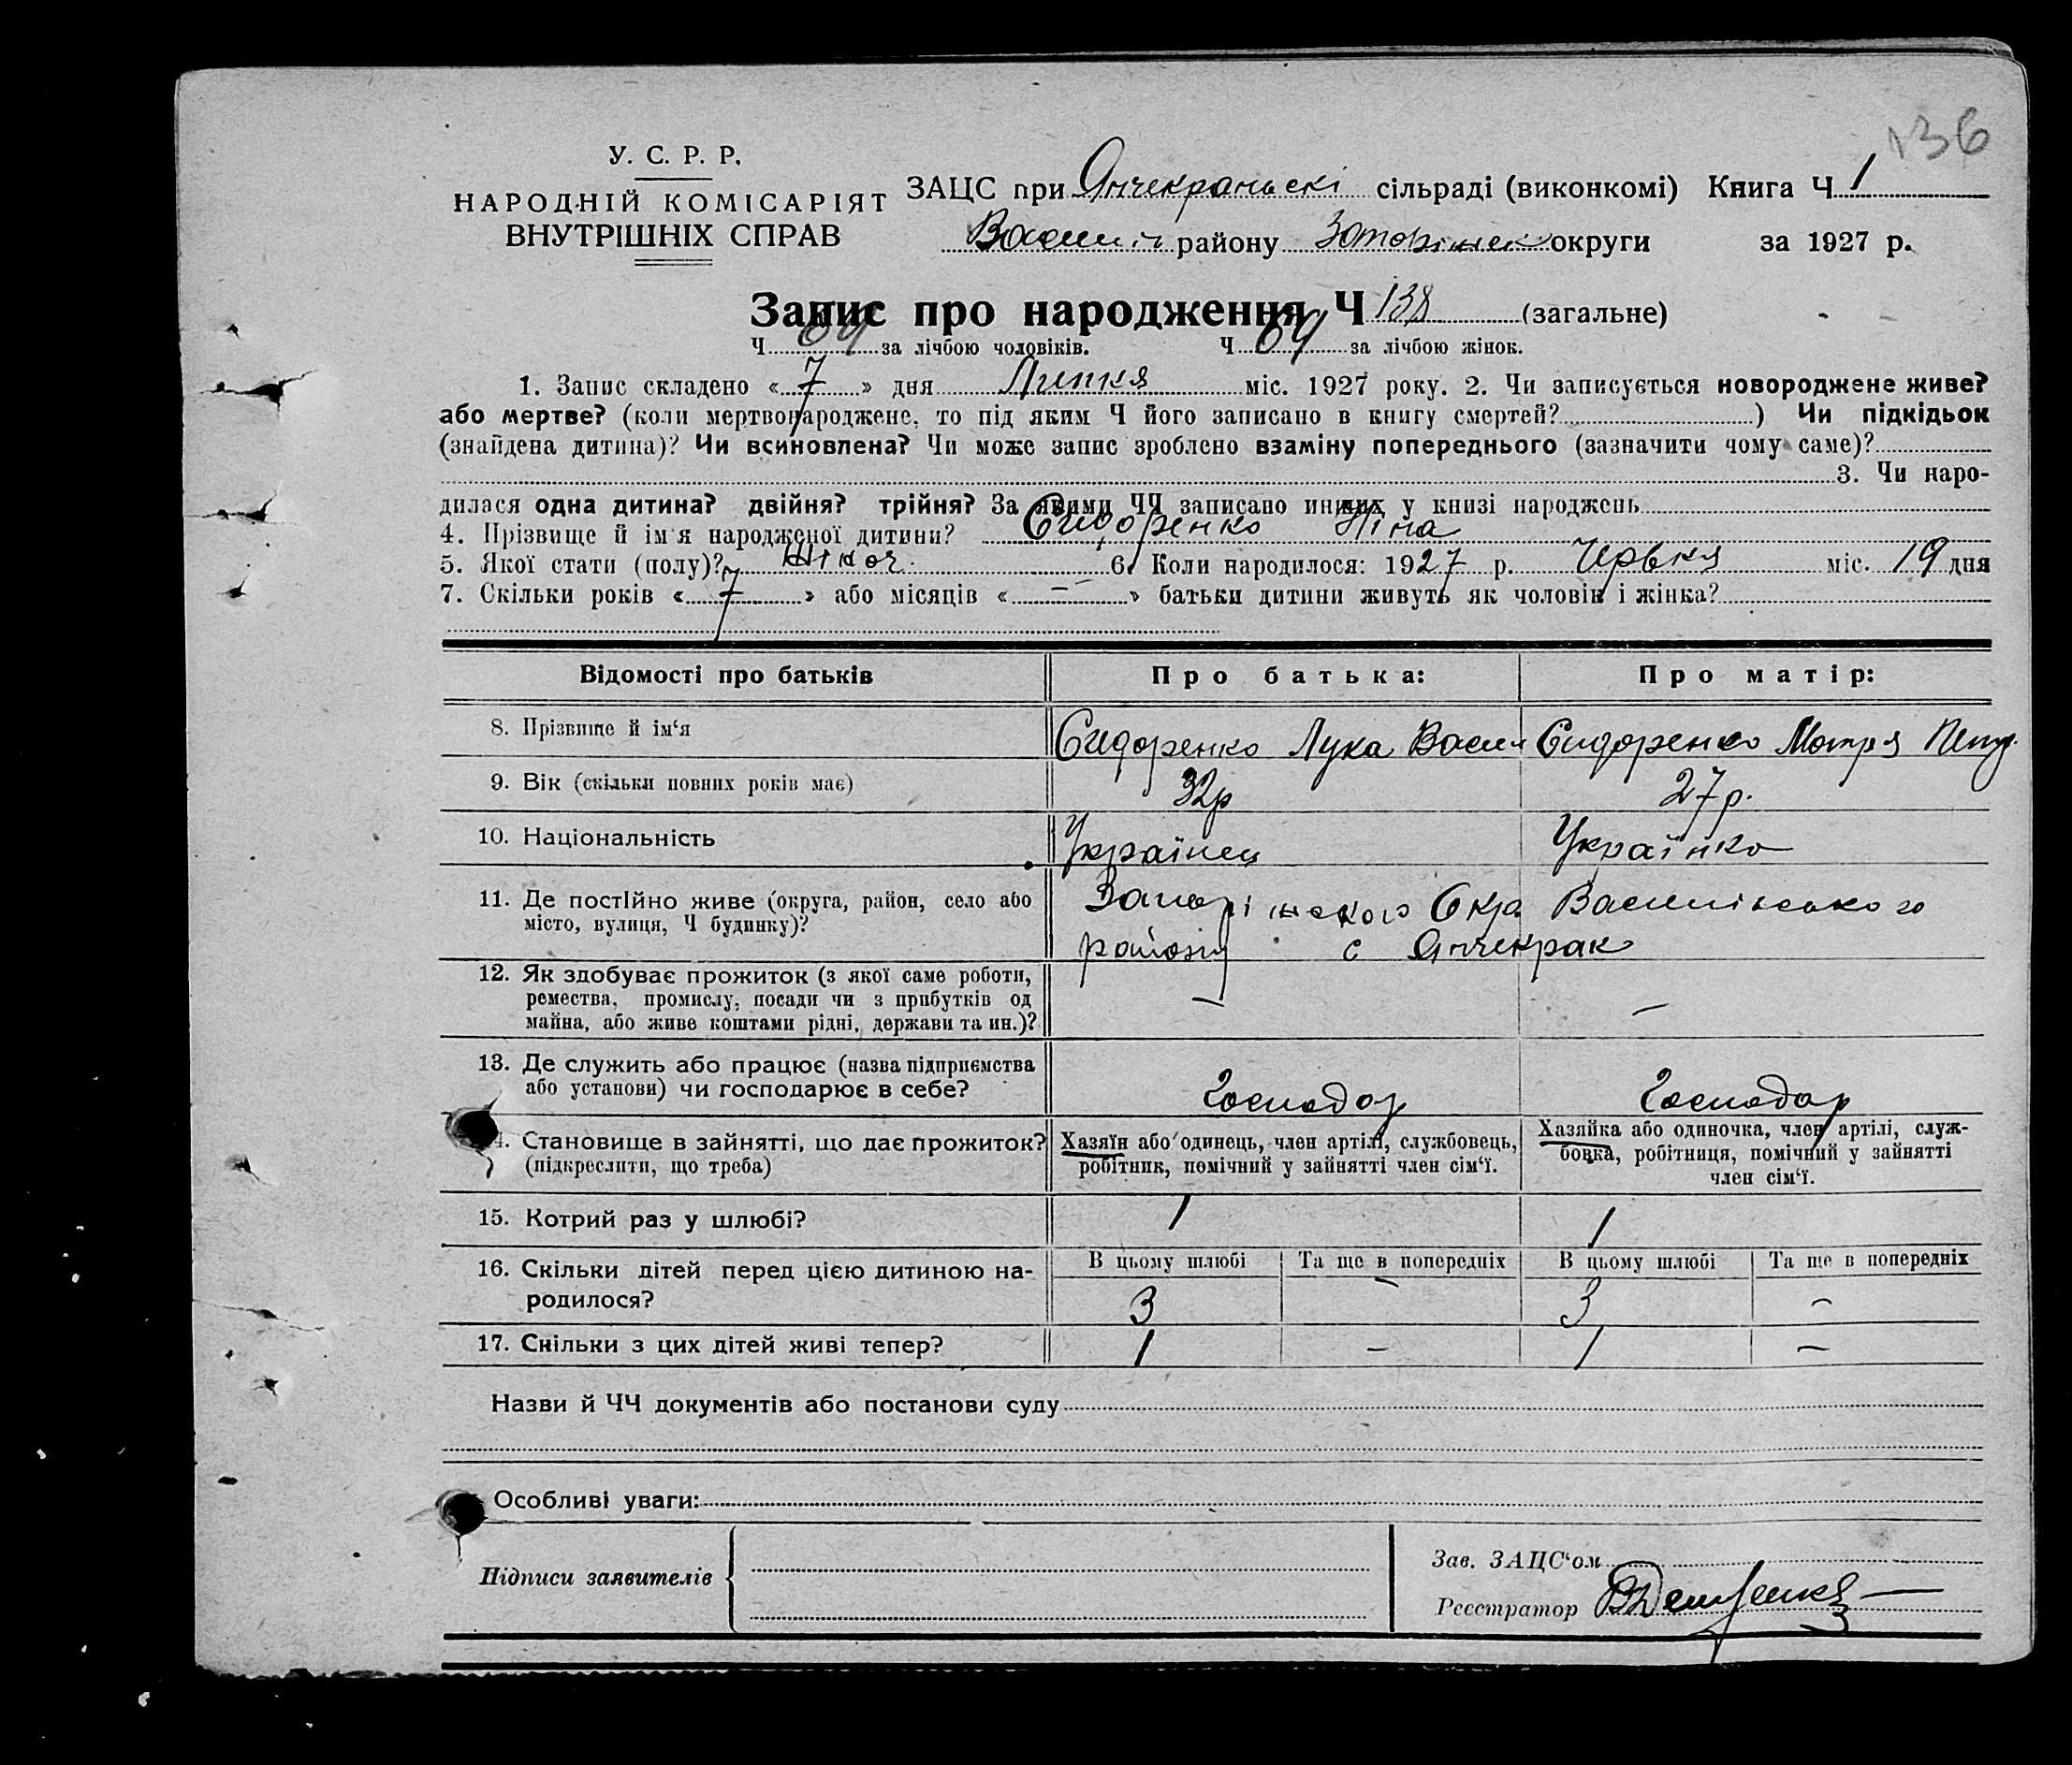 136
У. С. Р. Р.
НАРОДНІЙ КОМІСАРІЯТ
ВНУТРІШНІХ СПРАВ
ЗАЦС при Янчекраньскі сільраді (виконкомі) Книга Ч 1
Василів району округи за 1927 р.
Запис про народження Ч 138 (загальне)
Ч за лічбою чоловіків. Ч 64 за лічбою жінок.
1. Запис складено « 7 » дня Липня міс. 1927 року. 2. Чи записується новороджене живе?
або мертве? (коли мертвонароджене, то під яким Ч його записано в книгу смертей? ) Чи підкідьок
(знайдена дитина)? Чи всиновлена? Чи може запис зроблено взаміну попереднього (зазначити чому саме)?
3. Чи наро-
дилася одна дитина? двійня? трійня? За якими ЧЧ записано инших у книзі народжень
4. Прізвище й ім'я народженої дитини? Сидоренко Ніна
5. Якої стати (полу)? Жіноч. 6. Коли народилося: 1927 р. Червня міс. 19 дня
7. Скільки років « 7 » або місяців « — » батьки дитини живуть як чоловік і жінка?
Відомості про батьків Про батька: Про матір:
8. Прізвище й ім'я Сидоренко Лука Васил Сидоренко Мотря Петр.
9. Вік (скільки повних років має) 32р 27р.
10. Національність Українець Українко
11. Де постійно живе (округа, район, село або
місто, вулиця, Ч будинку)?
Запоріжського Окр Василівського
району с Янчекрак
12. Як здобуває прожиток (з якої саме роботи,
ремества, промислу, посади чи з прибутків од
майна, або живе коштами рідні, держави та ин.)? — —
13. Де служить або працює (назва підприємства
або установи) чи господарює в себе? Господар Господар
14. Становище в зайнятті, що дає прожиток?
(підкреслити, що треба)
Хазяїн або одинець, член артілі, службовець,
робітник, помічний у зайнятті член сім'ї.
Хазяйка або одиночка, член артілі, служ-
бовка, робітниця, помічний у зайнятті
член сім'ї.
15. Котрий раз у шлюбі? 1 1
16. Скільки дітей перед цією дитиною на-
родилося?
В цьому шлюбі Та ще в попередніх В цьому шлюбі Та ще в попередніх
3 — 3 —
17. Скільки з цих дітей живі тепер? 1 — 1 —
Назви й ЧЧ документів або постанови суду
Особливі уваги:
Підписи заявителів
Зав. ЗАЦС'ом
Реєстратор